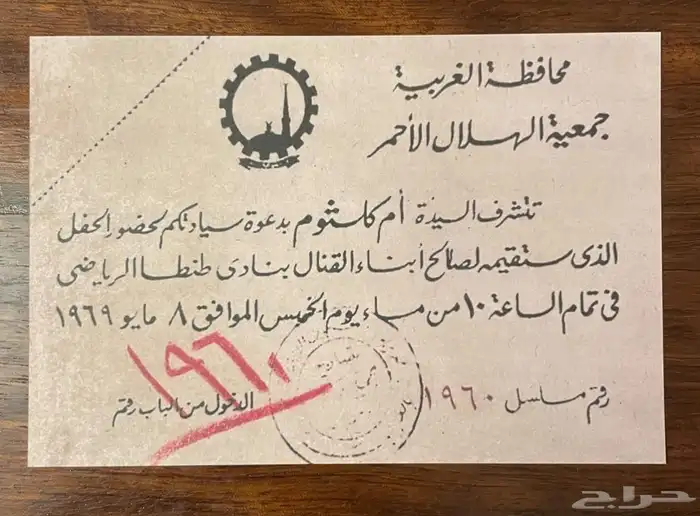 محافظة الغربية
جمعية الهلال الأحمر
تتشرف السيدة أم كلثوم بدعوة سيادتكم لحضور الحفل
الذى ستقيمه لصالح أبناء القنال بنادى طنطا الرياضى
فى تمام الساعة ١٠ من مساء يوم الخميس الموافق ٨ مايو ١٩٦٩
رقم مسلسل ١٩٦٠
الدخول من الباب رقم
١٩٦٠
حراج